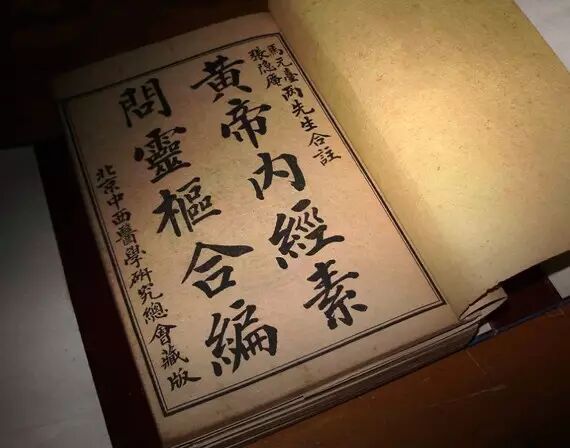 馬元臺
張隱庵 兩先生合註
黃帝內經素
問靈樞合編
北京中西醫學研究總會藏版